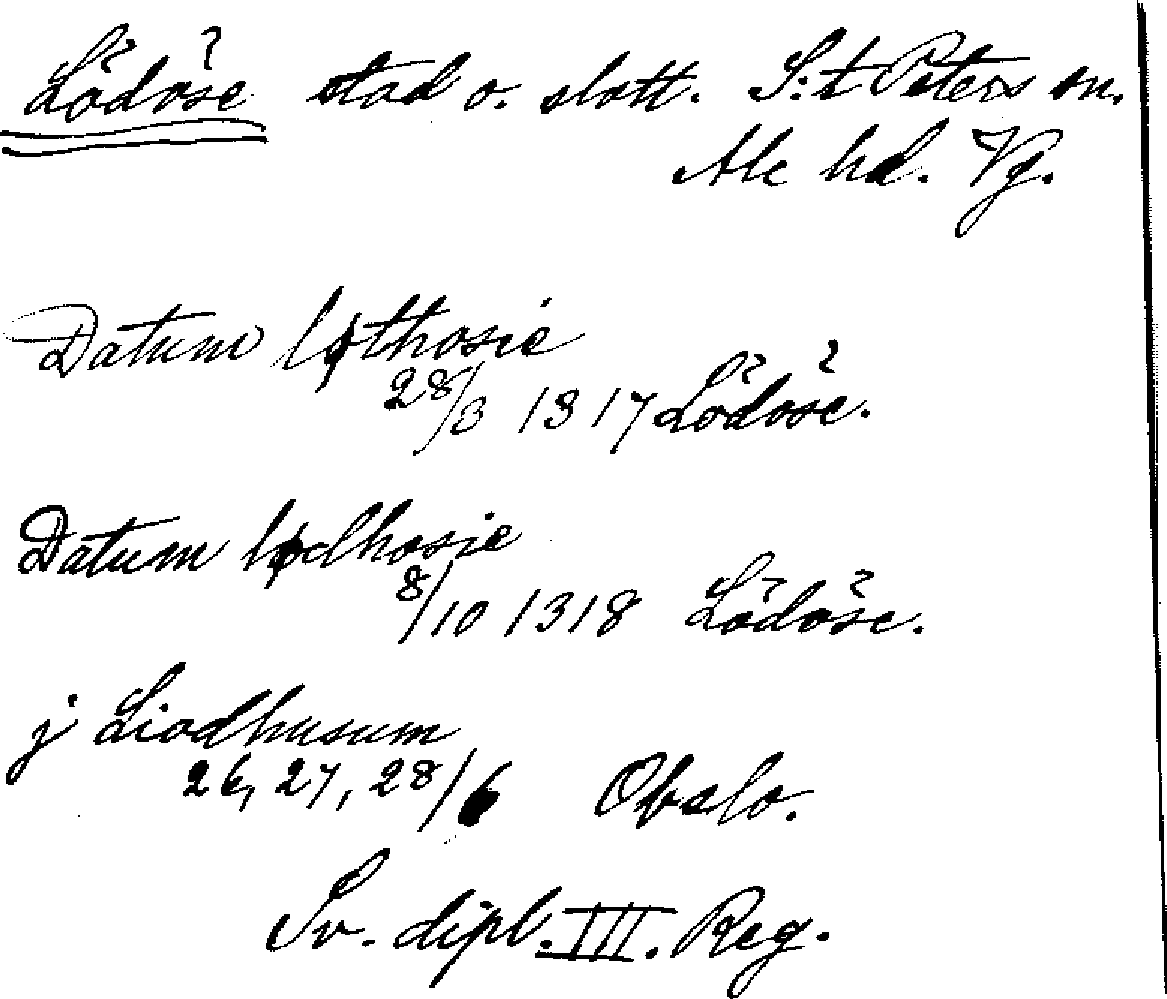 Lödöse stad o. slott. S:t Peters sn.
Ale hd. Vg.
Datum løthosie
28/3 1317 Lödöse.
Datum lødhosie
8/10 1318 Lödöse.
j Liodhusum
26, 27, 28/6 Obslo.
Sv. dipl. III. Reg.